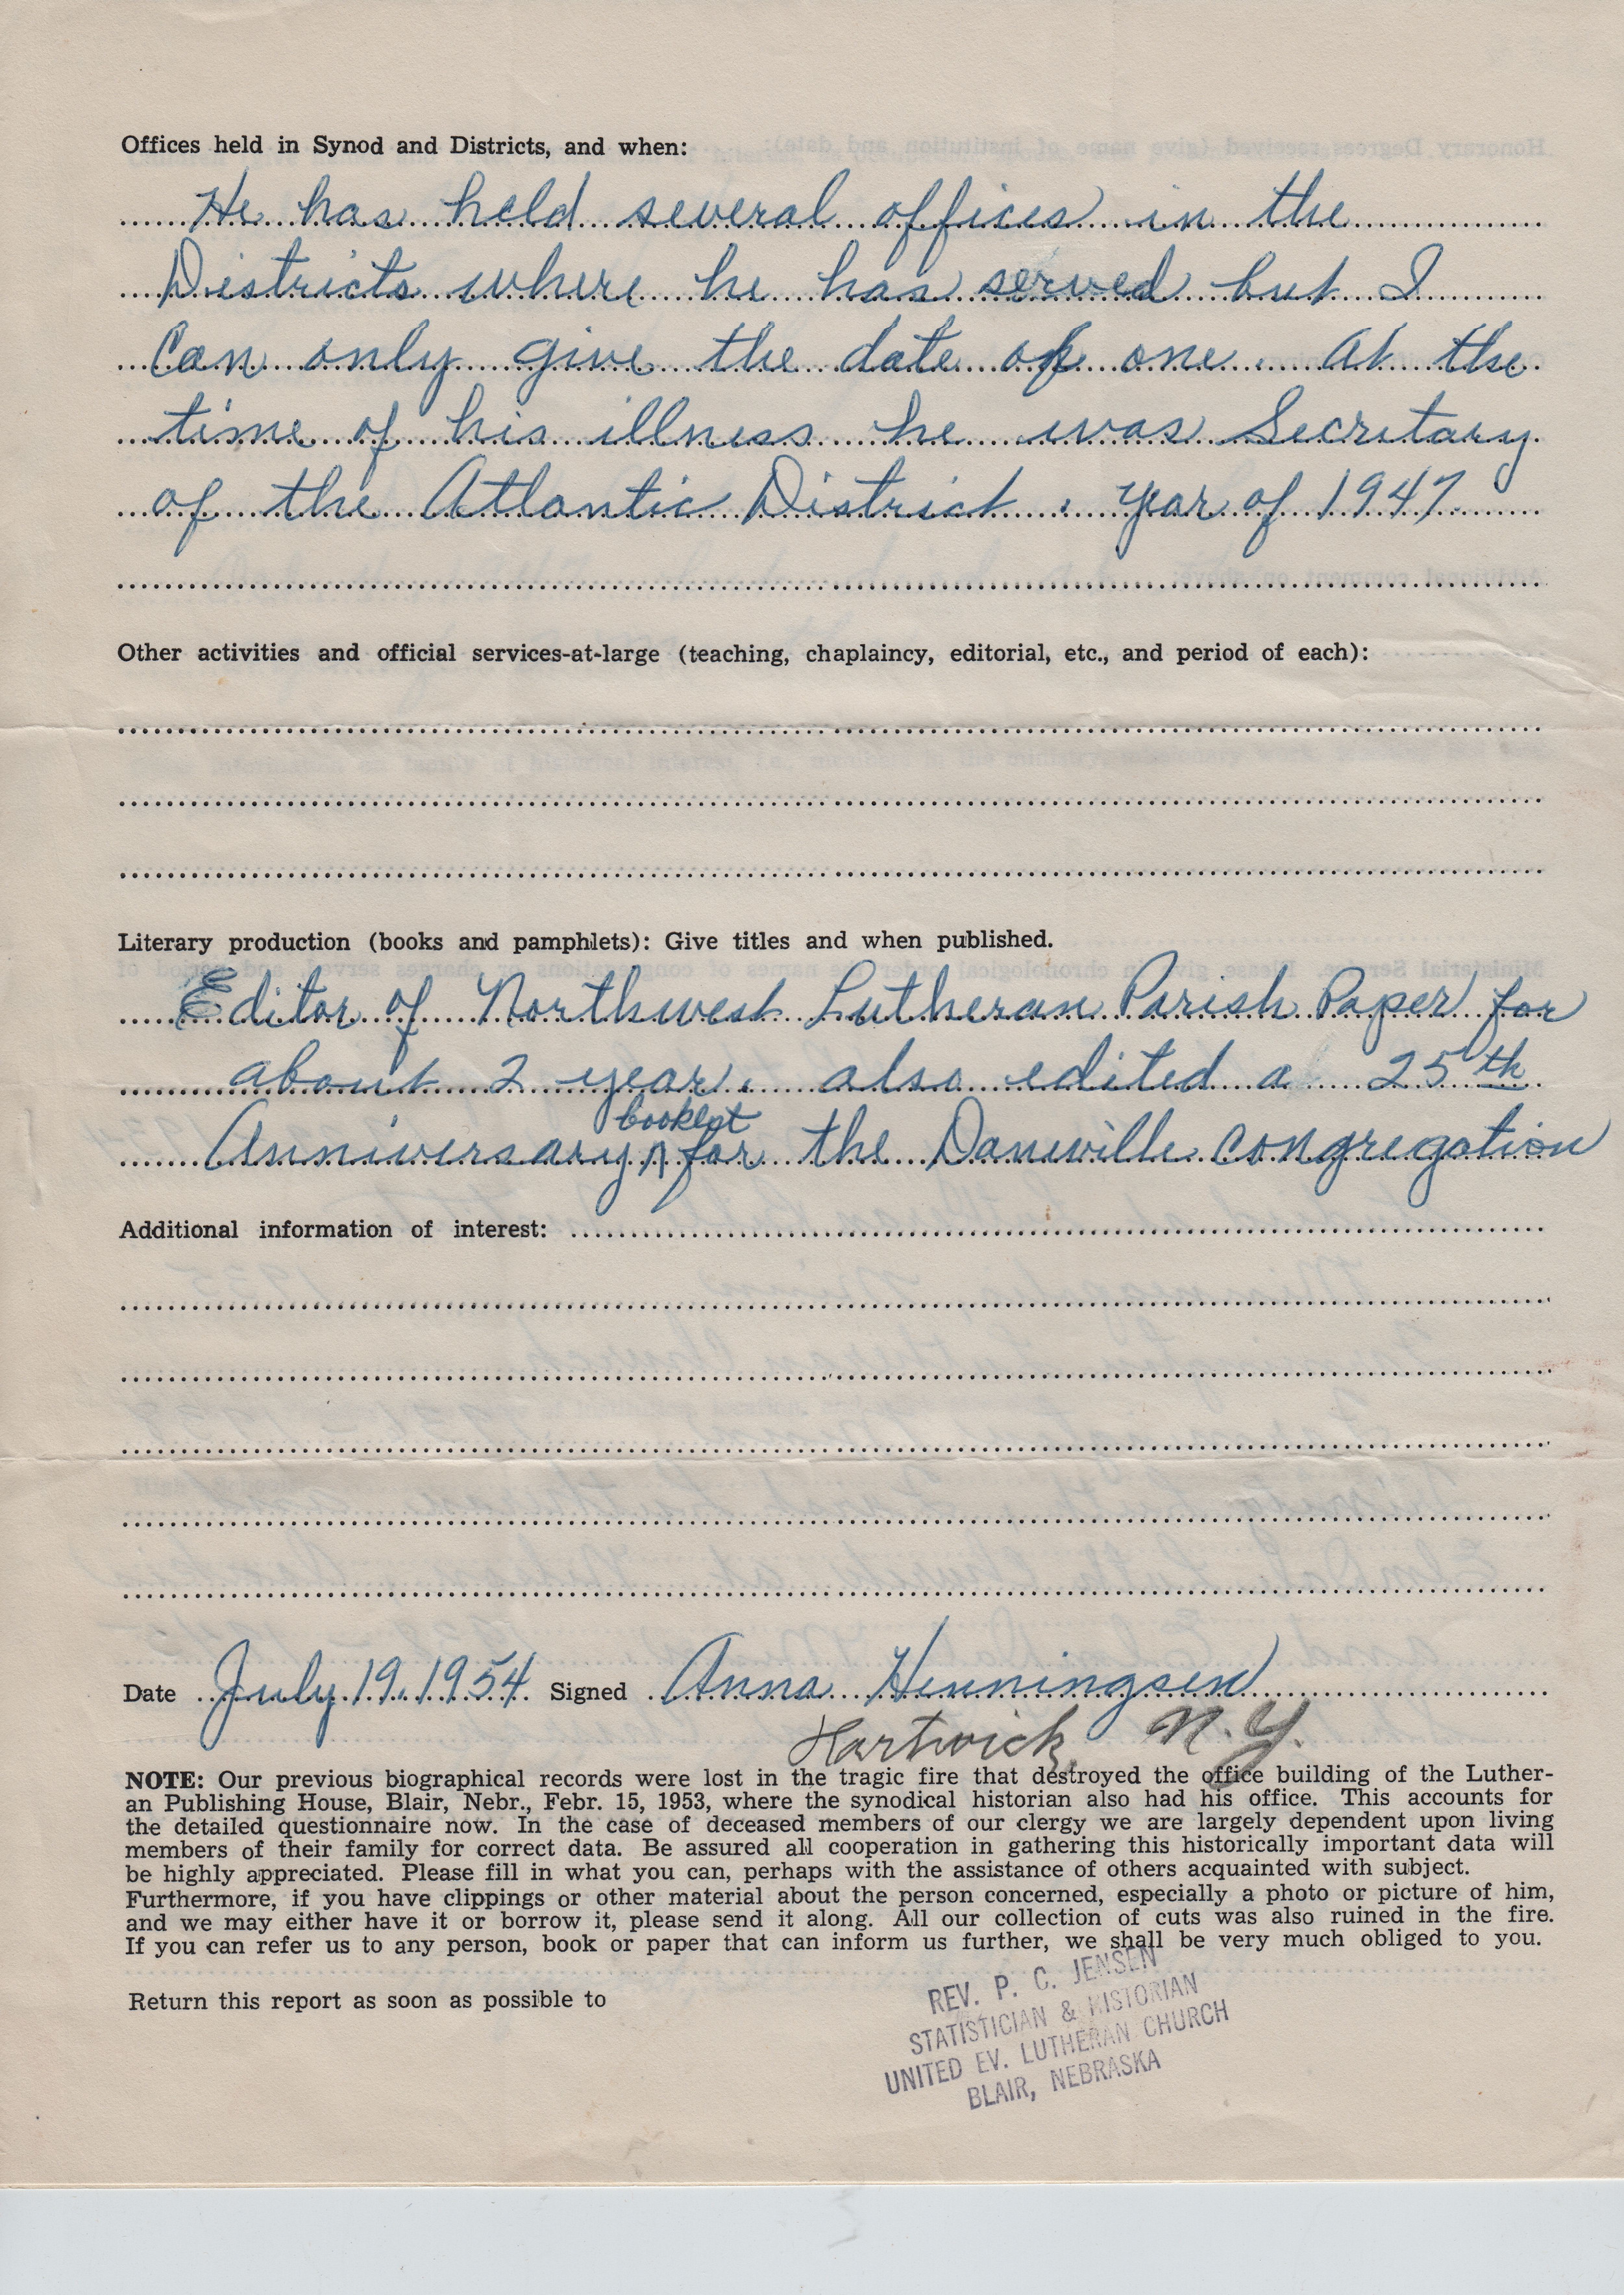 Offices held in Synod and Districts, and when:
He has held several offices in the
Districts where he has served but I
Can only give the date of one. At the
time of his illness he was Secretary
of the Atlantic District. year of 1947
Other activities and official services-at-large (teaching, chaplaincy, editorial, etc., and period of each):
Literary production (books and pamphlets): Give titles and when published.
Editor of Northwest Lutheran Parish Paper for
about 2 year. also edited a 25th
booklet
Anniversary for the Danville congregation
Additional information of interest:
Date July 19. 1954 Signed Anna Henningsen
Hartwick, N.Y.
NOTE: Our previous biographical records were lost in the tragic fire that destroyed the office building of the Luther-
an Publishing House, Blair, Nebr., Febr. 15, 1953, where the synodical historian also had his office. This accounts for
the detailed questionnaire now. In the case of deceased members of our clergy we are largely dependent upon living
members of their family for correct data. Be assured all cooperation in gathering this historically important data will
be highly appreciated. Please fill in what you can, perhaps with the assistance of others acquainted with subject.
Furthermore, if you have clippings or other material about the person concerned, especially a photo or picture of him,
and we may either have it or borrow it, please send it along. All our collection of cuts was also ruined in the fire.
If you can refer us to any person, book or paper that can inform us further, we shall be very much obliged to you.
Return this report as soon as possible to
REV. P. C. JENSEN
STATISTICIAN & HISTORIAN
UNITED EV. LUTHERAN CHURCH
BLAIR, NEBRASKA